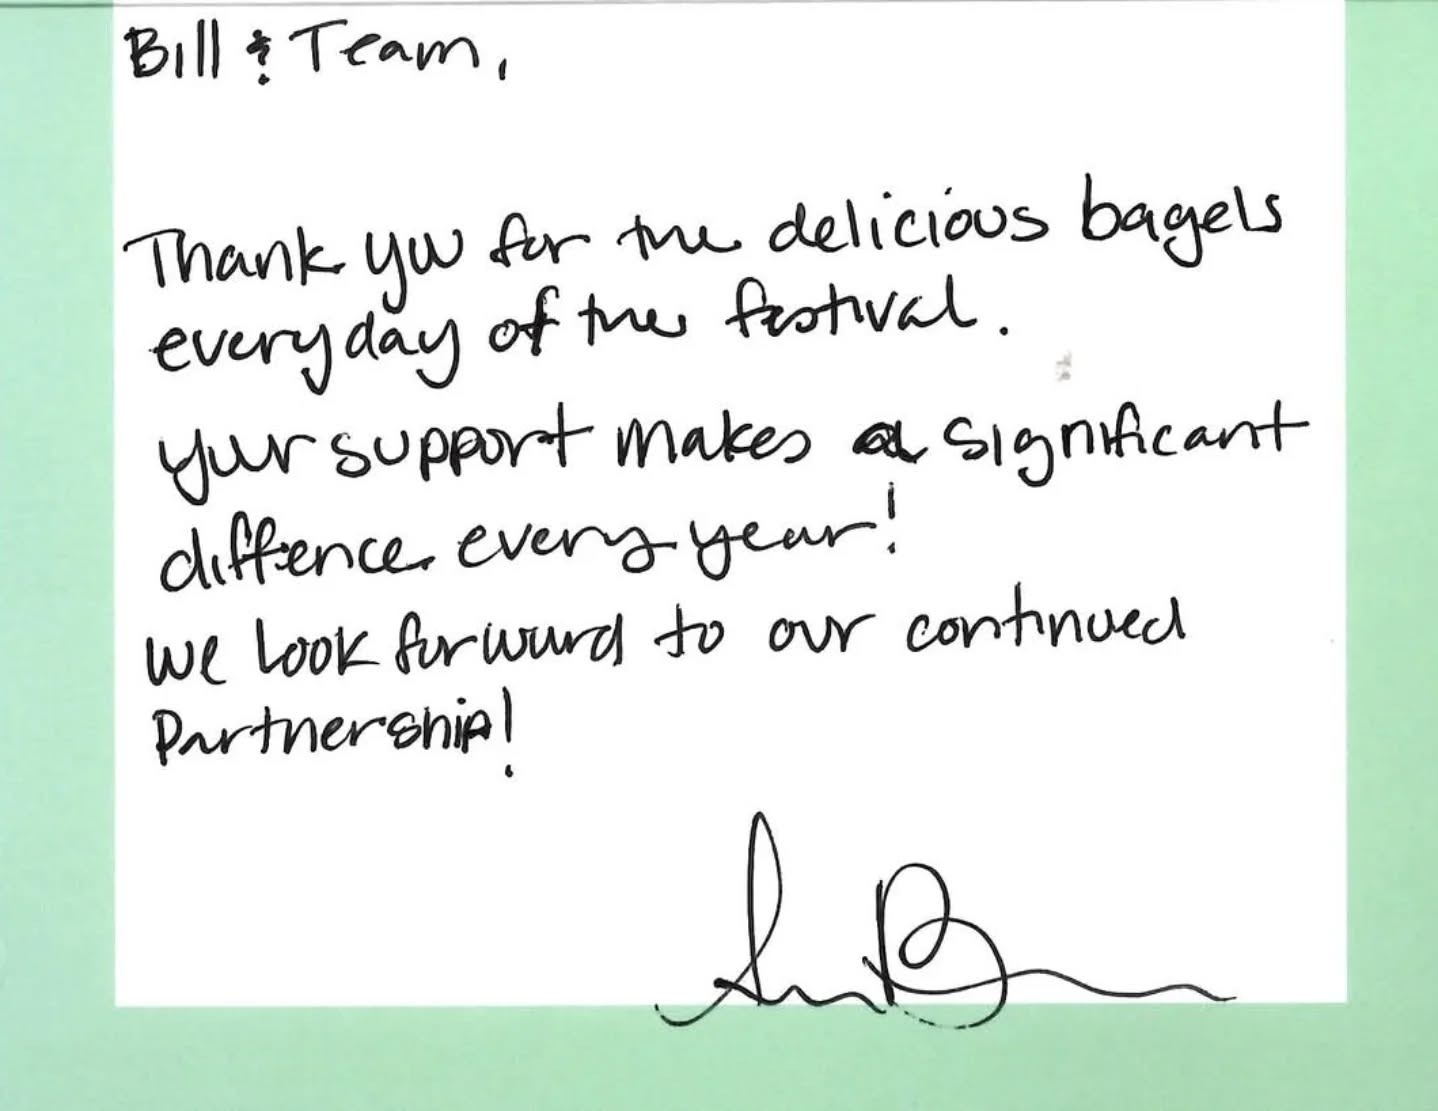 Bill & Team,
Thank you for the delicious bagels
everyday of the festival.
your support makes a significant
diffence every year!
we look forward to our continued
Partnership!